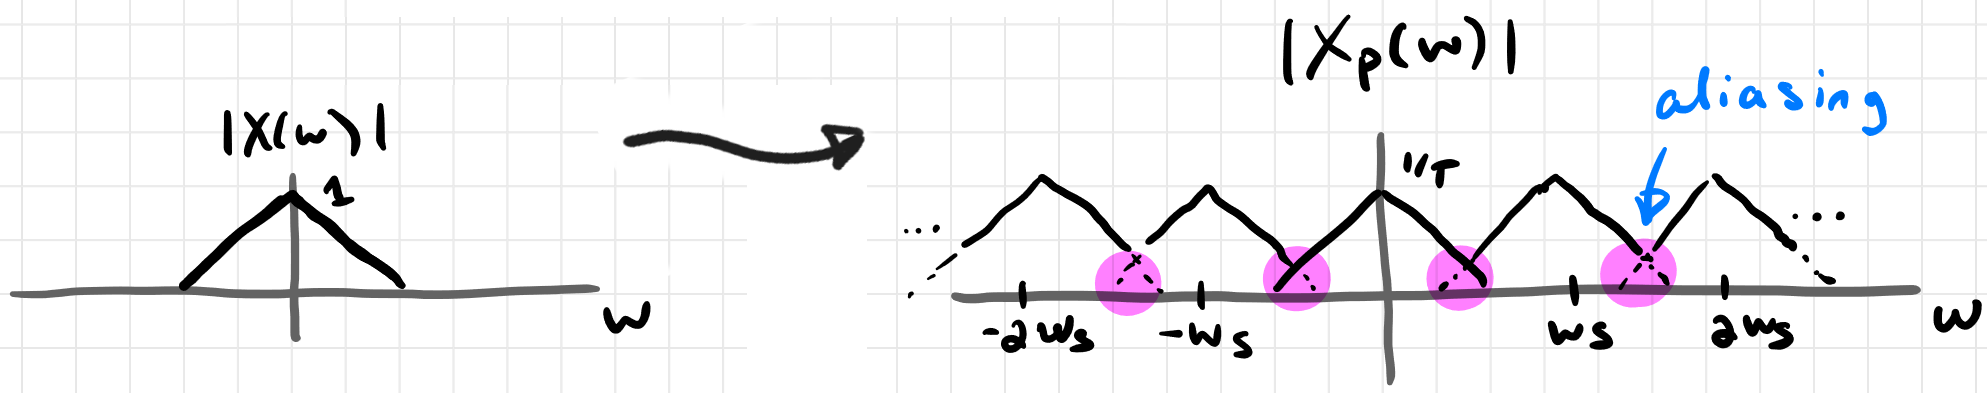 |X(w)|
1
w
|Xp(w)|
aliasing
1/T
...
...
-2ws -ws ws 2ws
w